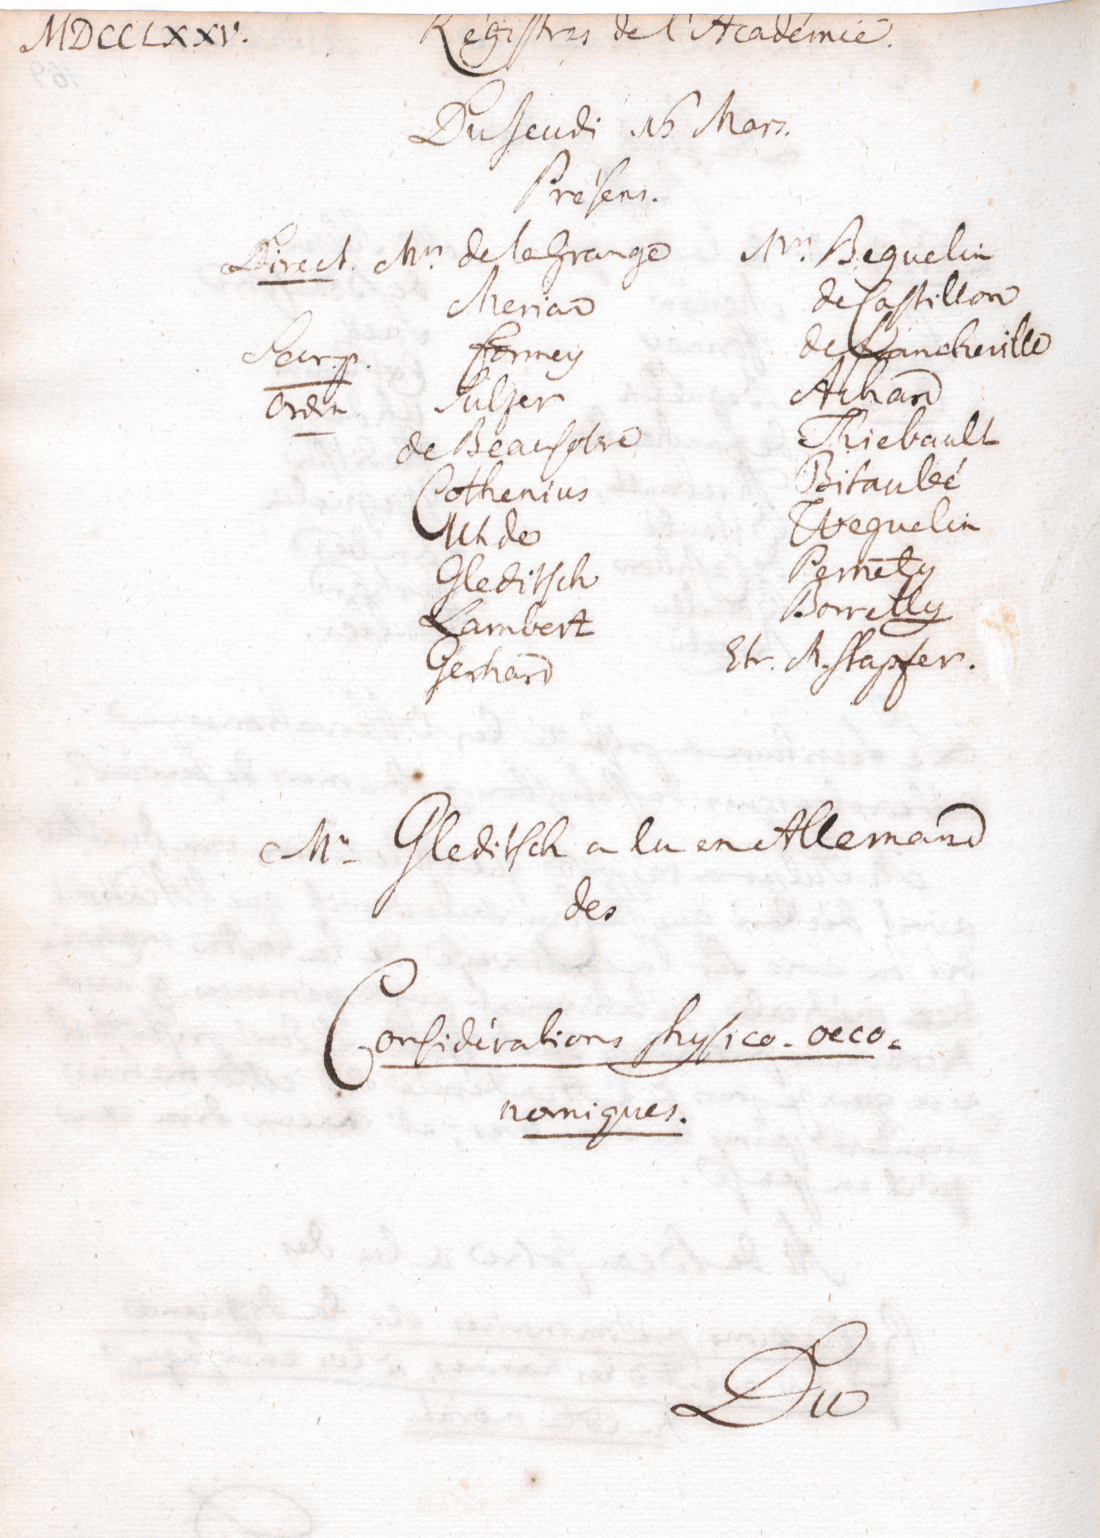 MDCCLXXV. Régistres de l'Académie.
Du Jeudi 16 Mars.
Présens.
Direct. Mrs. de la Grange Mrs. Beguelin
Merian de Castillon
Secr. p. Formey de Francheville
Ordin. Sulzer Achard
de Beausobre Thiebault
Cothenius Bitaubé
Uhde Weguelin
Gleditsch Pernety
Lambert Borrelly
Gerhard Etr. M. Stapfer.
Mr. Gleditsch a lu en Allemand
des
Considérations physico-oeco-
nomiques.
Du